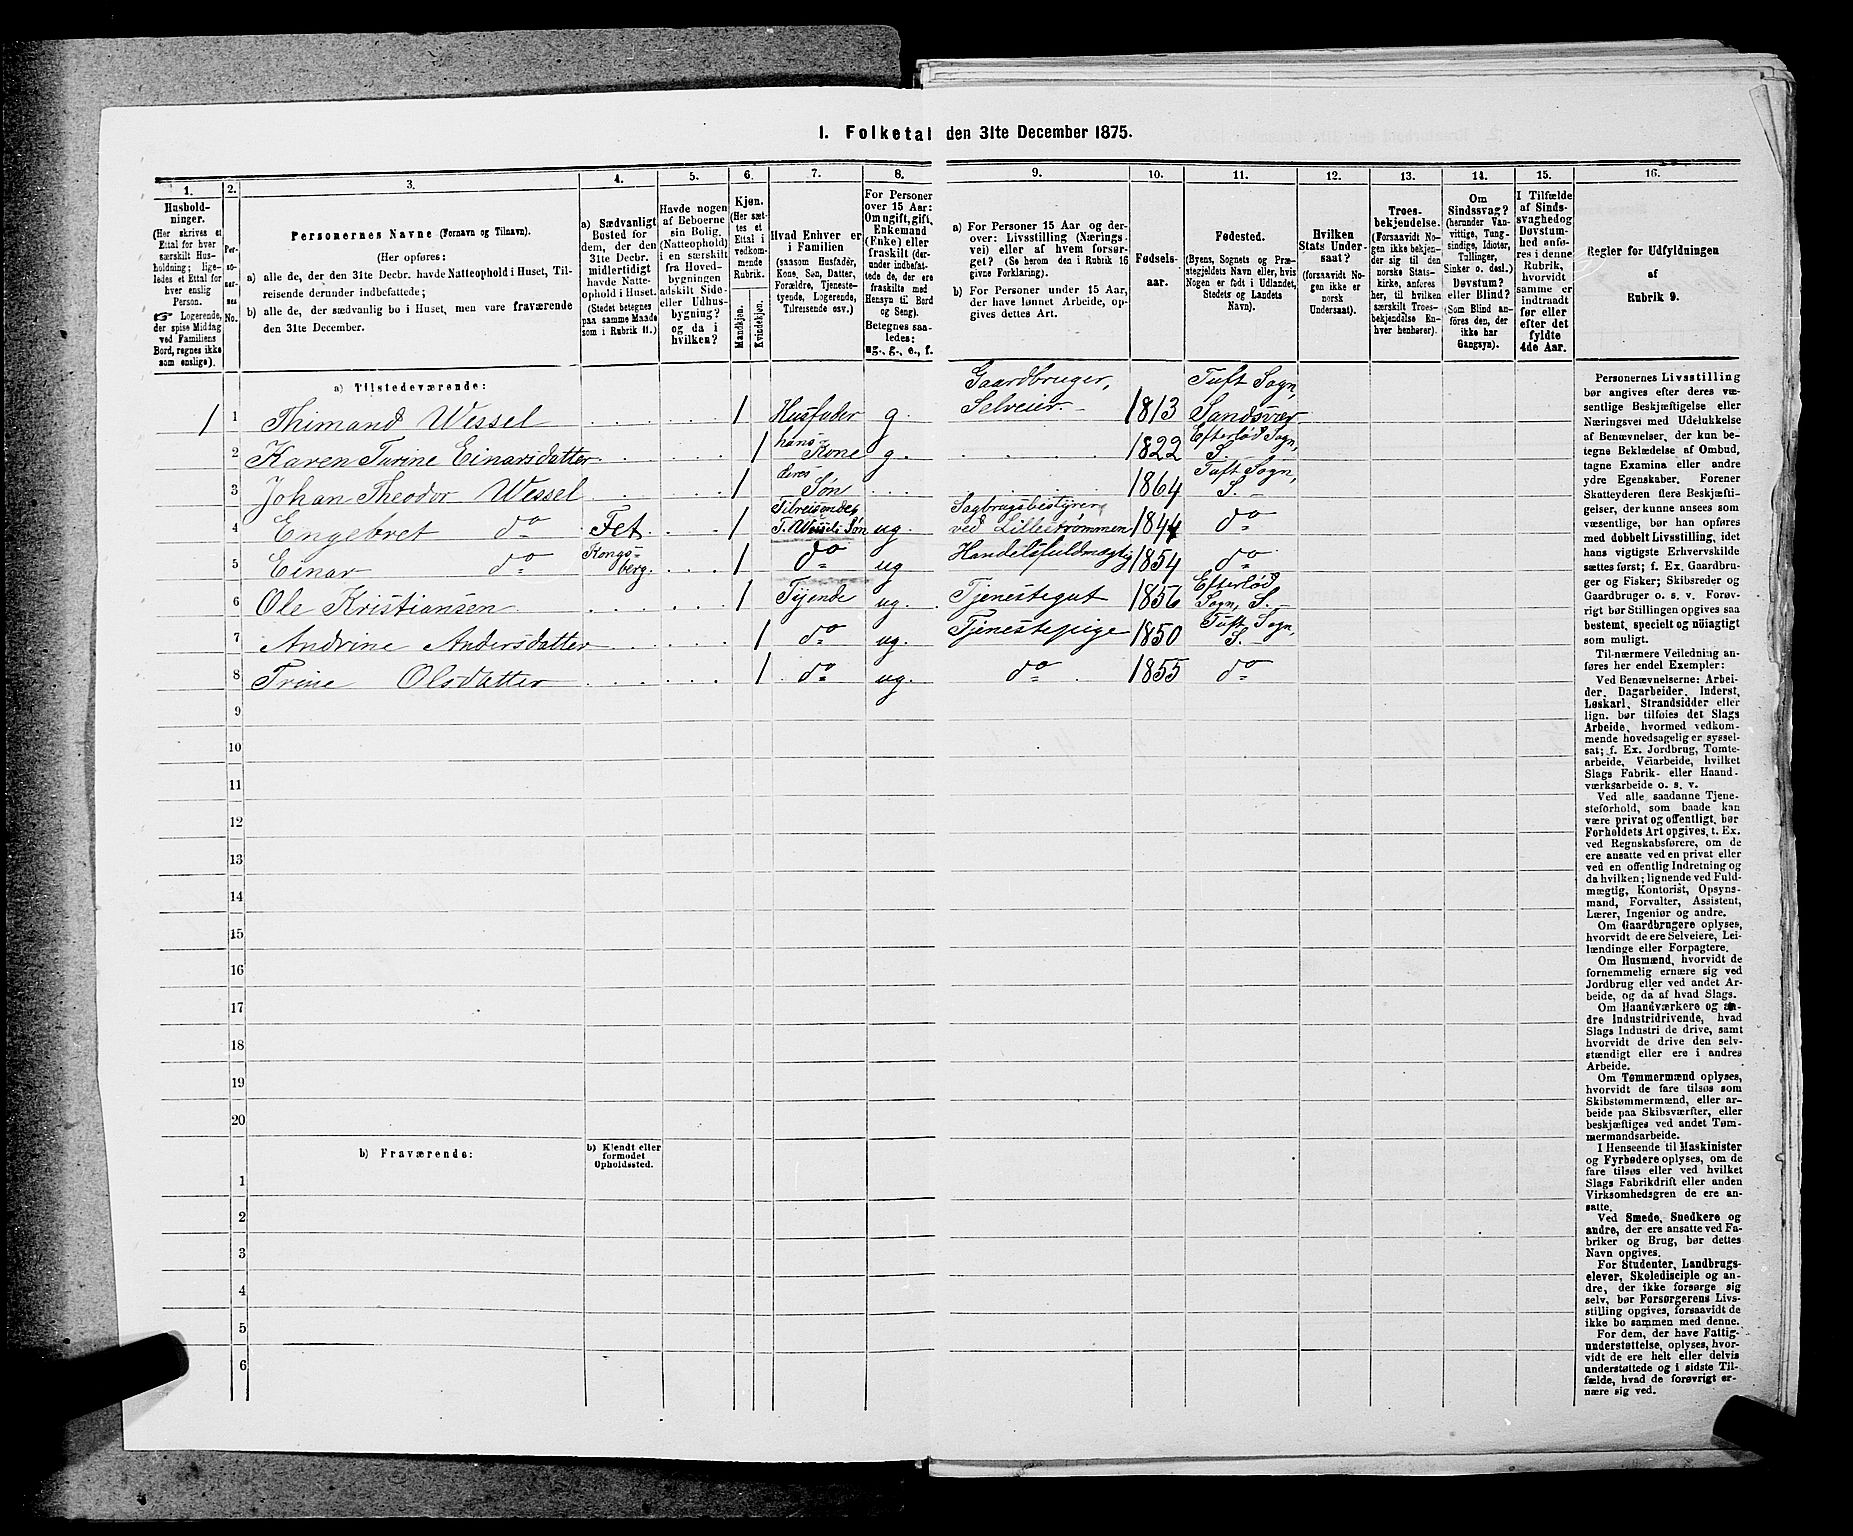 1. Folketal den 31te December 1875.
1.
2.
3.
4.
5.
6.
7.
8.
9.
10.
11.
12.
13.
14.
15.
16.
Husholdninger.
(Her skrives et
Ettal for hver
særskilt Husholdning;
ligeledes et Ettal for
hver enslig
Person.
☞ Logerende,
der spise Middag
ved Familiens
Bord, regnes ikke
som enslige).
Personernes No.
Personernes Navne (Fornavn og Tilnavn).
(Her opføres:
a) alle de, der den 31te Decbr. havde Natteophold i Huset, Tilreisende derunder indbefattede;
b) alle de, der sædvanlig bo i Huset, men vare fraværende
den 31te December.
a) Sædvanligt
Bosted for
dem, der den
31te Decbr.
midlertidigt
havde Natteophold i Huset.
(Stedet betegnes
paa samme Maade
som i Rubrik 11.)
Havde nogen
af Beboerne
sin Bolig,
(Natteophold)
i en særskilt
fra Hovedbygningen
adskilt Side-
eller Udhusbygning?
og da i
hvilken?
Kjøn.
(Her sættes et
Ettal i
vedkommende
Rubrik.
Mandkjøn.
Kvindekjøn.
Hvad Enhver er
i Familien
(saasom Husfader,
Kone, Søn, Datter,
Forældre, Tjenestetyende, Logerende,
Tilreisende osv.)
For Personer
over 15 Aar:
Om ugift, gift,
Enkemand
(Enke) eller
fraskilt (derunder indbefattede de, der ere
fraskilte med
Hensyn til Bord
og Seng).
Betegnes saaledes:
ug., g., e., f.
a) For Personer 15 Aar og derover: Livsstilling (Næringsvei) eller af hvem forsørget? (Se herom den i Rubrik 16
givne Forklaring).
b) For Personer under 15 Aar,
der have lønnet Arbeide, opgives dettes Art.
Fødselsaar.
Fødested.
(Byens, Sognets og Præstegjeldets Navn eller, hvis
Nogen er født i Udlandet,
Stedets og Landets
Navn).
Hvilken
Stats Undersaat?
(forsaavidt Nogen ikke er
norsk
Undersaat).
Troesbekjendelse.
(Forsaavidt Nogen ikke bekjender sig til den
norske Statskirke, anføres
her, til hvilken
særskilt Troesbekjendelse Enhver henhører).
Om
Sindssvag?
(herunder Vanvittige, Tungsindige, Idioter,
Tullinger,
Sinker o. desl.)
Døvstum?
eller Blind?
(Som Blind anføres den, der
ikke har
Gangsyn).
I Tilfælde
af Sindssvaghed og
Døvstumhed anføres i denne
Rubrik,
hvorvidt
samme er
indtraadt
før eller
efter det
fyldte
4de Aar.
Regler for Udfyldningen
af
Rubrik 9.
a) Tilstedeværende:
1 1 Thimand Wessel 1 Husfader g. Gaardbruger, Selveier. 1813 Tuft Sogn, Sandsvær
2 Karen Turine Einarsdatter 1 hans Kone g. 1822 Efterlød Sogn, S.
3 Johan Theodor Wessel 1 deres Søn 1864 Tuft Sogn, S.
4 Engebret do Fet 1 Tilreisende, T. Wessels Søn ug Sagbrugsbestyrer ved Lillestrømmen 1844 do
5 Einar do Kongsberg. 1 do ug Handelsfuldmægtig 1854 do
6 Ole Kristiansen 1 Tjende ug. Tjenestegut 1856 Efterlød Sogn, S.
7 Andrine Andersdatter 1 do ug. Tjenestepige 1850 Tuft Sogn, S.
8 Trine Olsdatter 1 do ug. do 1855 do
9
10
11
12
13
14
15
16
17
18
19
20
b) Fraværende:
b) Kjendt eller
formodet
Opholdssted.
1
2
3
4
5
6
Personernes Livsstilling
bør angives efter deres væsentlige Beskjæftigelse eller
Næringsvei med Udelukkelse
af Benævnelser, der kun betegne Beklædelse af Ombud,
tagne Examina eller andre
ydre Egenskaber. Forener
Skatteyderen flere Beskjæftigelser, der kunne ansees som
væsentlige, bør han opføres
med dobbelt Livsstilling, idet
hans vigtigste Erhvervskilde
sættes først; f. Ex. Gaardbruger og Fisker; Skibsreder og
Gaardbruger o. s. v. Forøvrigt bør Stillingen opgives saa
bestemt, specielt og nøiagtigt
som muligt.
Til nærmere Veiledning anføres her endel Exempler:
Ved Benævnelserne: Arbeider, Dagarbeider, Inderst,
Løskarl, Strandsidder eller
lign. bør tilføies det Slags
Arbeide, hvormed vedkommende hovedsagelig er sysselsat; f. Ex. Jordbrug, Tomtearbeide, Veiarbeide, hvilket
Slags Fabrik- eller Haandværksarbeide o. s. v.
Ved alle saadanne Tjenesteforhold, som baade kan
være privat og offentligt, bør
Forholdets Art opgives, t. Ex.
ved Regnskabsførere, om de
ere ansatte ved en privat eller
ved en offentlig Indretning og
da hvilken; lignende ved Fuldmægtig, Kontorist, Opsynsmand, Forvalter, Assistent,
Lærer, Ingeniør og andre.
Om Gaardbrugere oplyses,
hvorvidt de ere Selveiere, Leilændinge eller Forpagtere.
Om Husmænd, hvorvidt de
fornemmelig ernære sig ved
Jordbrug eller ved andet Arbeide, og da af hvad Slags.
Om Haandværkere og andre Industridrivende, hvad
Slags Industri de drive, samt
hvorvidt de drive den selvstændigt eller ere i andres
Arbeide.
Om Tømmermænd oplyses,
hvorvidt de fare tilsøs som
Skibstømmermænd, eller arbeide paa Skibsværfter, eller
beskjæftiges ved andet Tømmermandsarbeide.
I Henseende til Maskinister
og Fyrbødere oplyses, om de
fare tilsøs eller ved hvilket
Slags Fabrikdrift eller anden
Virksomhedsgren de ere ansatte.
Ved Smede, Snedkere og
andre, der ere ansatte ved Fabriker og Brug, bør dettes
Navn opgives.
For Studenter, Landbrugselever, Skoledisciple og andre, der ikke forsørge sig
selv, bør Forsørgerens Livsstilling opgives, forsaavidt de
ikke bo sammen med denne.
For dem, der have Fattigunderstøttelse, oplyses, hvorvidt de ere helt eller delvis
understøttede og i sidste Tilfælde, hvad de forøvrigt ernære sig ved.